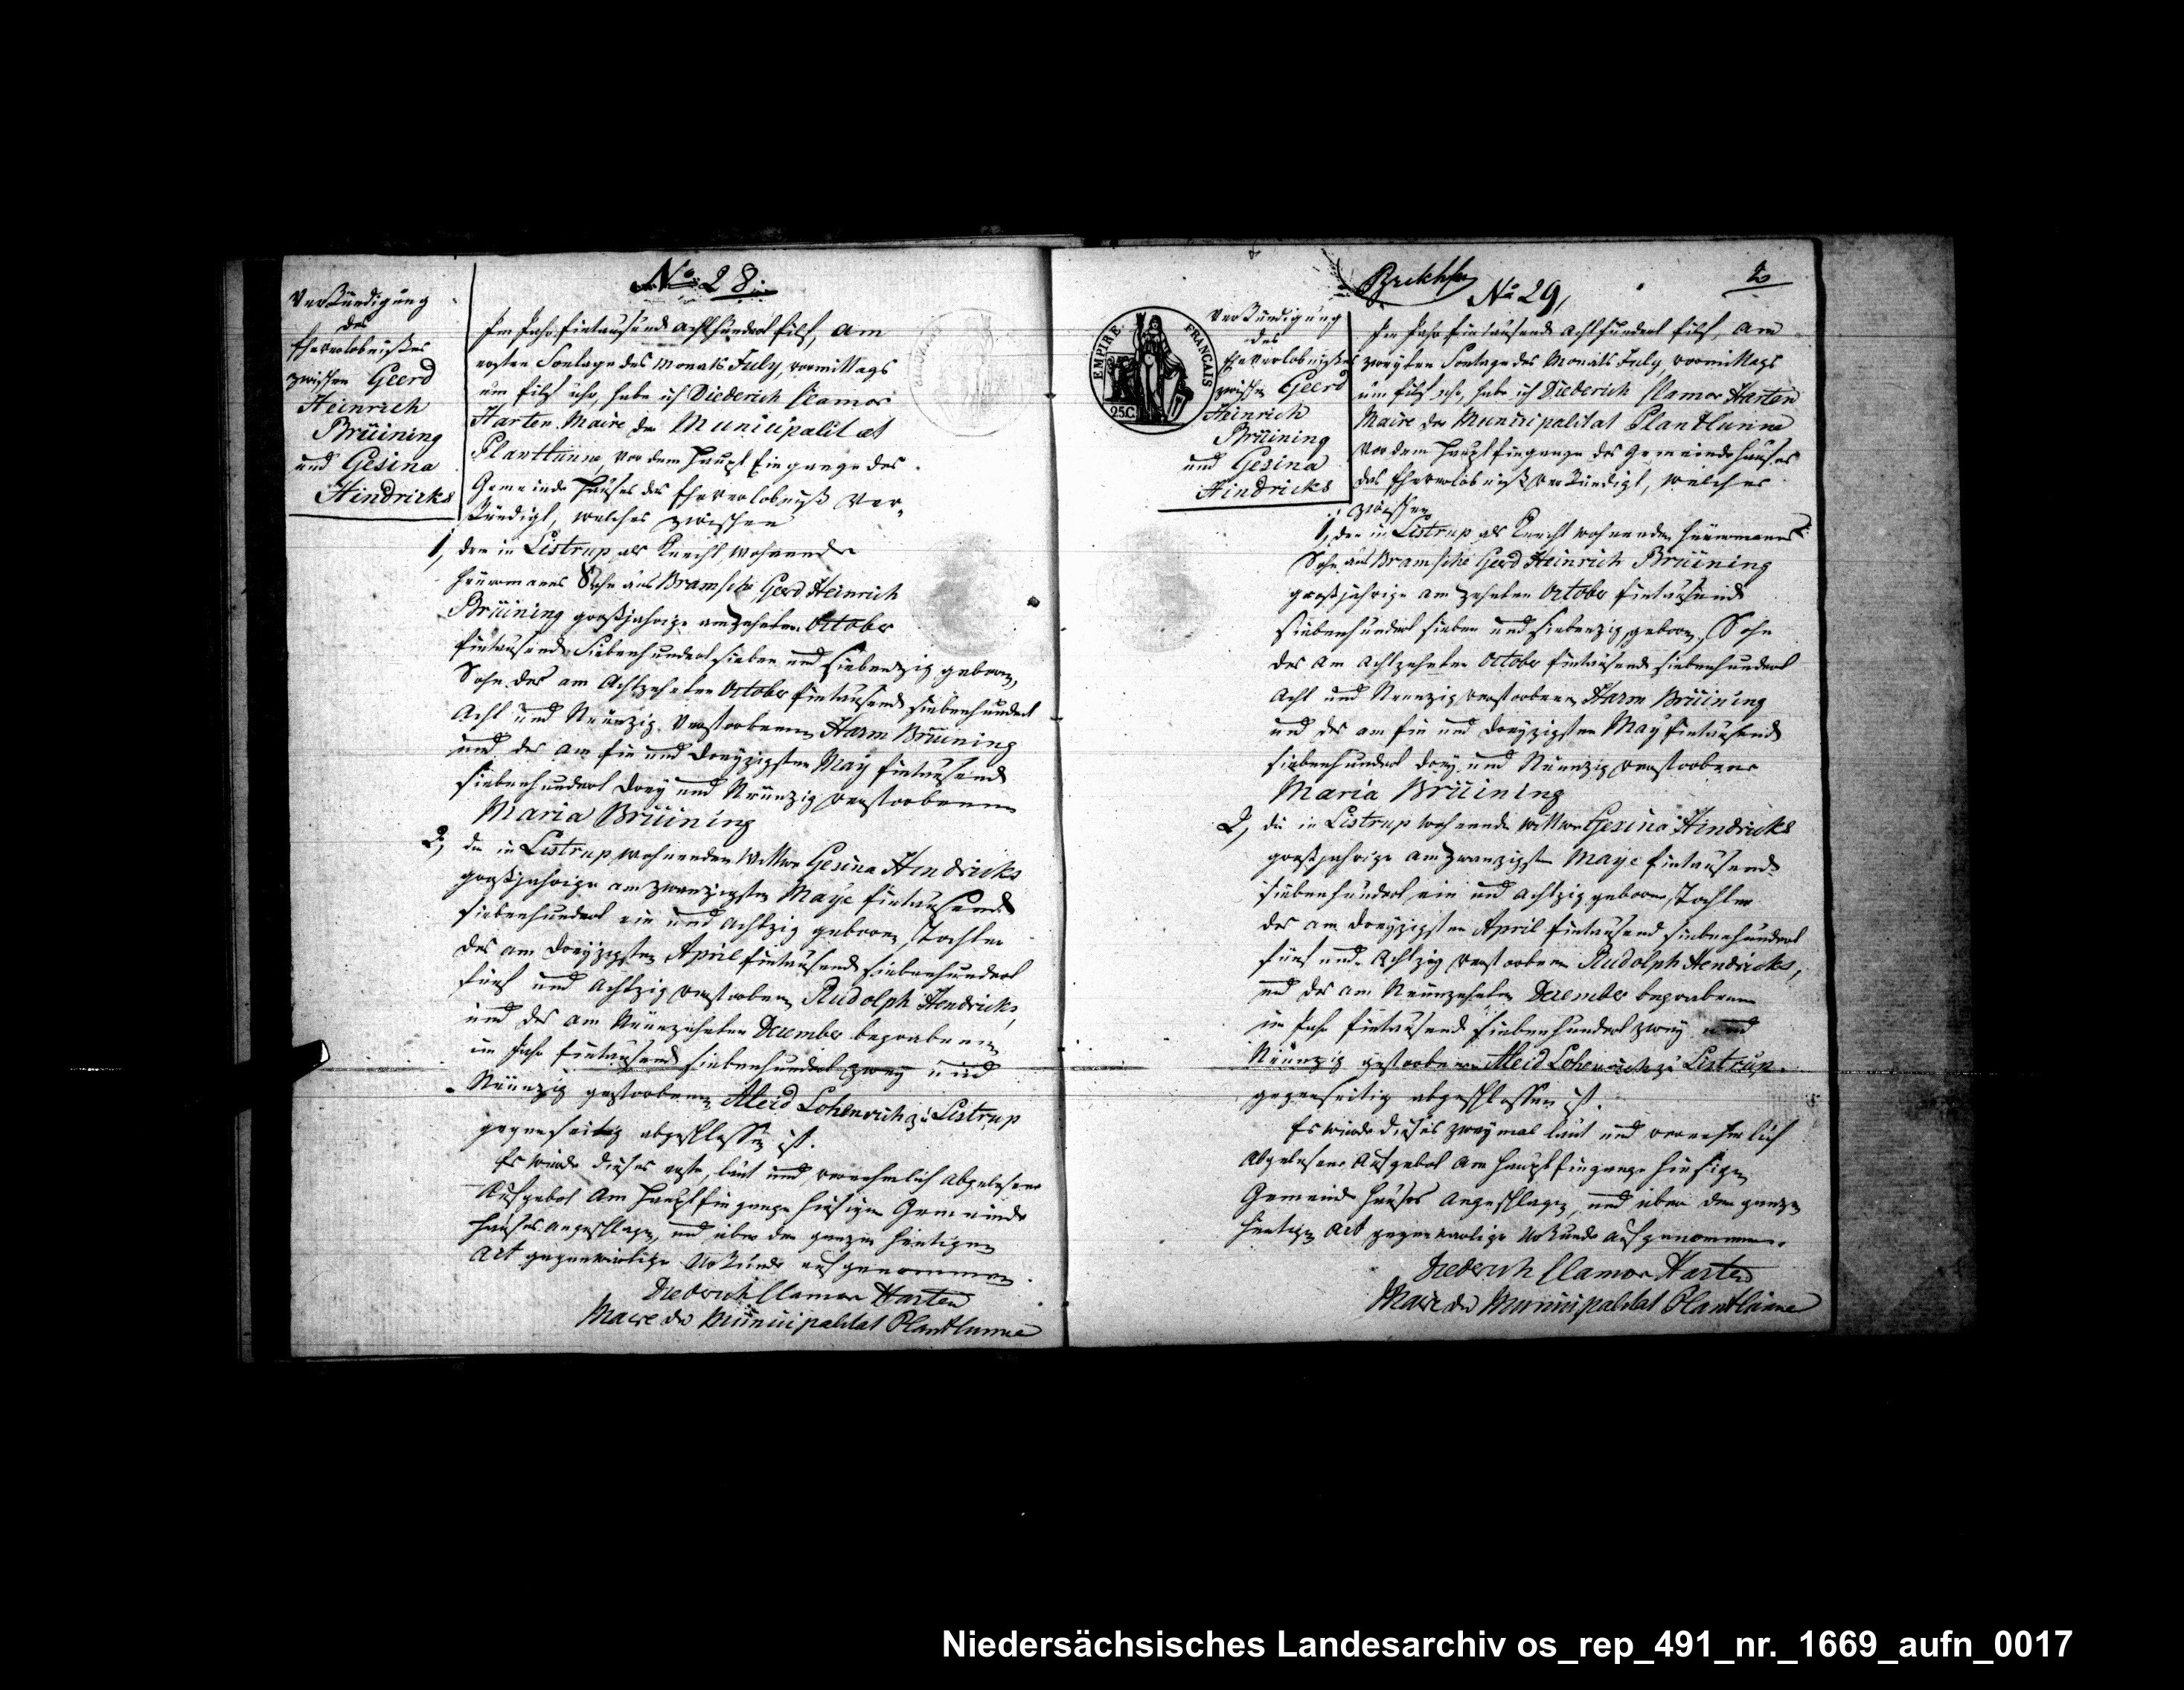 No 28.
Verkündigung
des
Eheverlobnißes
zwischen Geerd
Heinrich
Brüining
und Gesina
Hindricks
Im Jahr Eintausend achthundert Eilf, am
ersten Sontage des Monats July, vormittags
um Eilf Uhr, habe ich Diederich Clamor
Harten Maire der Municipalitæt
Plantlünne, vor dem Haupt Eingange des
Gemeinde Hauses das Eheverlobniß ver-
kündigt, welches zwischen
1, den in Listrup als Knecht wohnende
Heuermanns Sohn aus Bramsche, Gerd Heinrich
Brüining großjahrige am zehnten October
Eintausend Siebenhundert sieben und siebenzig geboren,
Sohn des am Achtzehnten October Eintausend siebenhundert
Acht und Neunzig verstorbenen Harm Brüining
und der am Ein und dreyzigsten May Eintausend
siebenhundert drey und Neunzig verstorbenen
Maria Brüining
2, die in Listrup wohnenden Wittwe Gesina Hindricks
großjahrige am zwanzigsten Maye Eintausend
siebenhundert ein und achtzig geboren, Tochter
des am dreyzigsten April Eintausend siebenhundert
fünf und achtzig verstorbenen Rudolph Hendricks,
und der am Neunzehnten December begrabenen
im Jahr Eintausend siebenhundert zwey und
Neunzig gestorbenen Aleid Lohenrich zu Listrup
gegenseitig abgeschlossen ist.
Es wurde dieses erste, laut und vernehmlich abgelesene
Aufgebot am Haupt Eingange hiesigen Gemeinde
Hauses angeschlagen, und über den ganzen heutigen
Act gegenwärtige Urkunde aufgenommen.
Diederich Clamor Harten
Maire der Municipalitat Plantlünne
No 29,
2
EMPIRE FRANÇAIS
25C
Verkündigung
des
Eheverlobnißes
zwischen Geerd
Heinrich
Brüining
und Gesina
Hindricks
Im Jahr Eintausend achthundert Eilf, am
zweyten Sontage des Monats July vormittags
um Eilf Uhr, habe ich Diederich Clamor Harten
Maire der Municipalitat Plantlünne
vor dem Haupt Eingange des Gemeinde Hauses
das Eheverlobniß verkündigt, welches
zwischen
1, den in Listrup als Knecht wohnenden Heuermanns
Sohn aus Bramsche Gerd Heinrich Brüining
großjährige am zehnten October Eintausend
siebenhundert sieben und siebenzig geboren, Sohn
des am Achtzehnten October Eintausend siebenhundert
Acht und Neunzig verstorbenen Harm Brüining
und der am Ein und dreyzigsten May Eintausend
siebenhundert drey und Neunzig verstorbene
Maria Brüining
2, die in Listrup wohnende Wittwe Gesina Hindricks
großjahrige am zwanzigsten Maye Eintausend
siebenhundert ein und achtzig geboren, Tochter
des am dreyzigsten April Eintausend siebenhundert
fünf und achtzig verstorbenen Rudolph Hendricks,
und der am Neunzehnten December begrabenen
im Jahr Eintausend siebenhundert zwey und
Neunzig gestorbenen Aleid Lohenrich zu Listrup.
gegenseitig abgeschlossen ist.
Es wurde dieses zweymal laut und vernehmlich
abgelesene Aufgebot am Haupt Eingange hiesigen
Gemeinde Hauses angeschlagen, und über den ganzen
heutigen Act gegenwartige Urkunde aufgenommen.
Diederich Clamor Harten
Maire der Municipalitat Plantlünne
Niedersächsisches Landesarchiv os_rep_491_nr._1669_aufn_0017